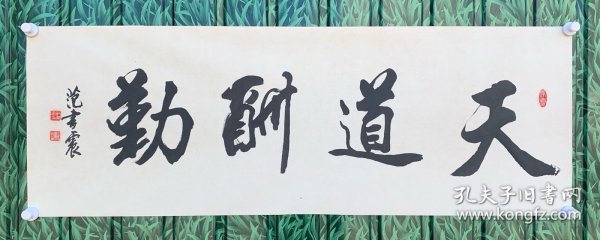 天道酬勤
范书震
孔夫子旧书网
www.kongfz.com